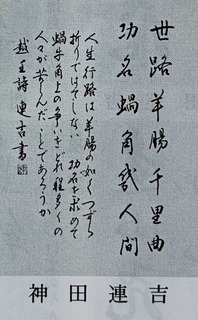 世路羊腸千里曲
功名蝸角幾人間
人生行路は羊腸の如くつづら
折りではてしない 功名を求めて
蝸牛角上の争いにどれ程多くの
人々が苦しんだことであろうか
越王詩 連吉書
神田連吉